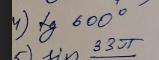 4) tg 600°
5) sin 33π